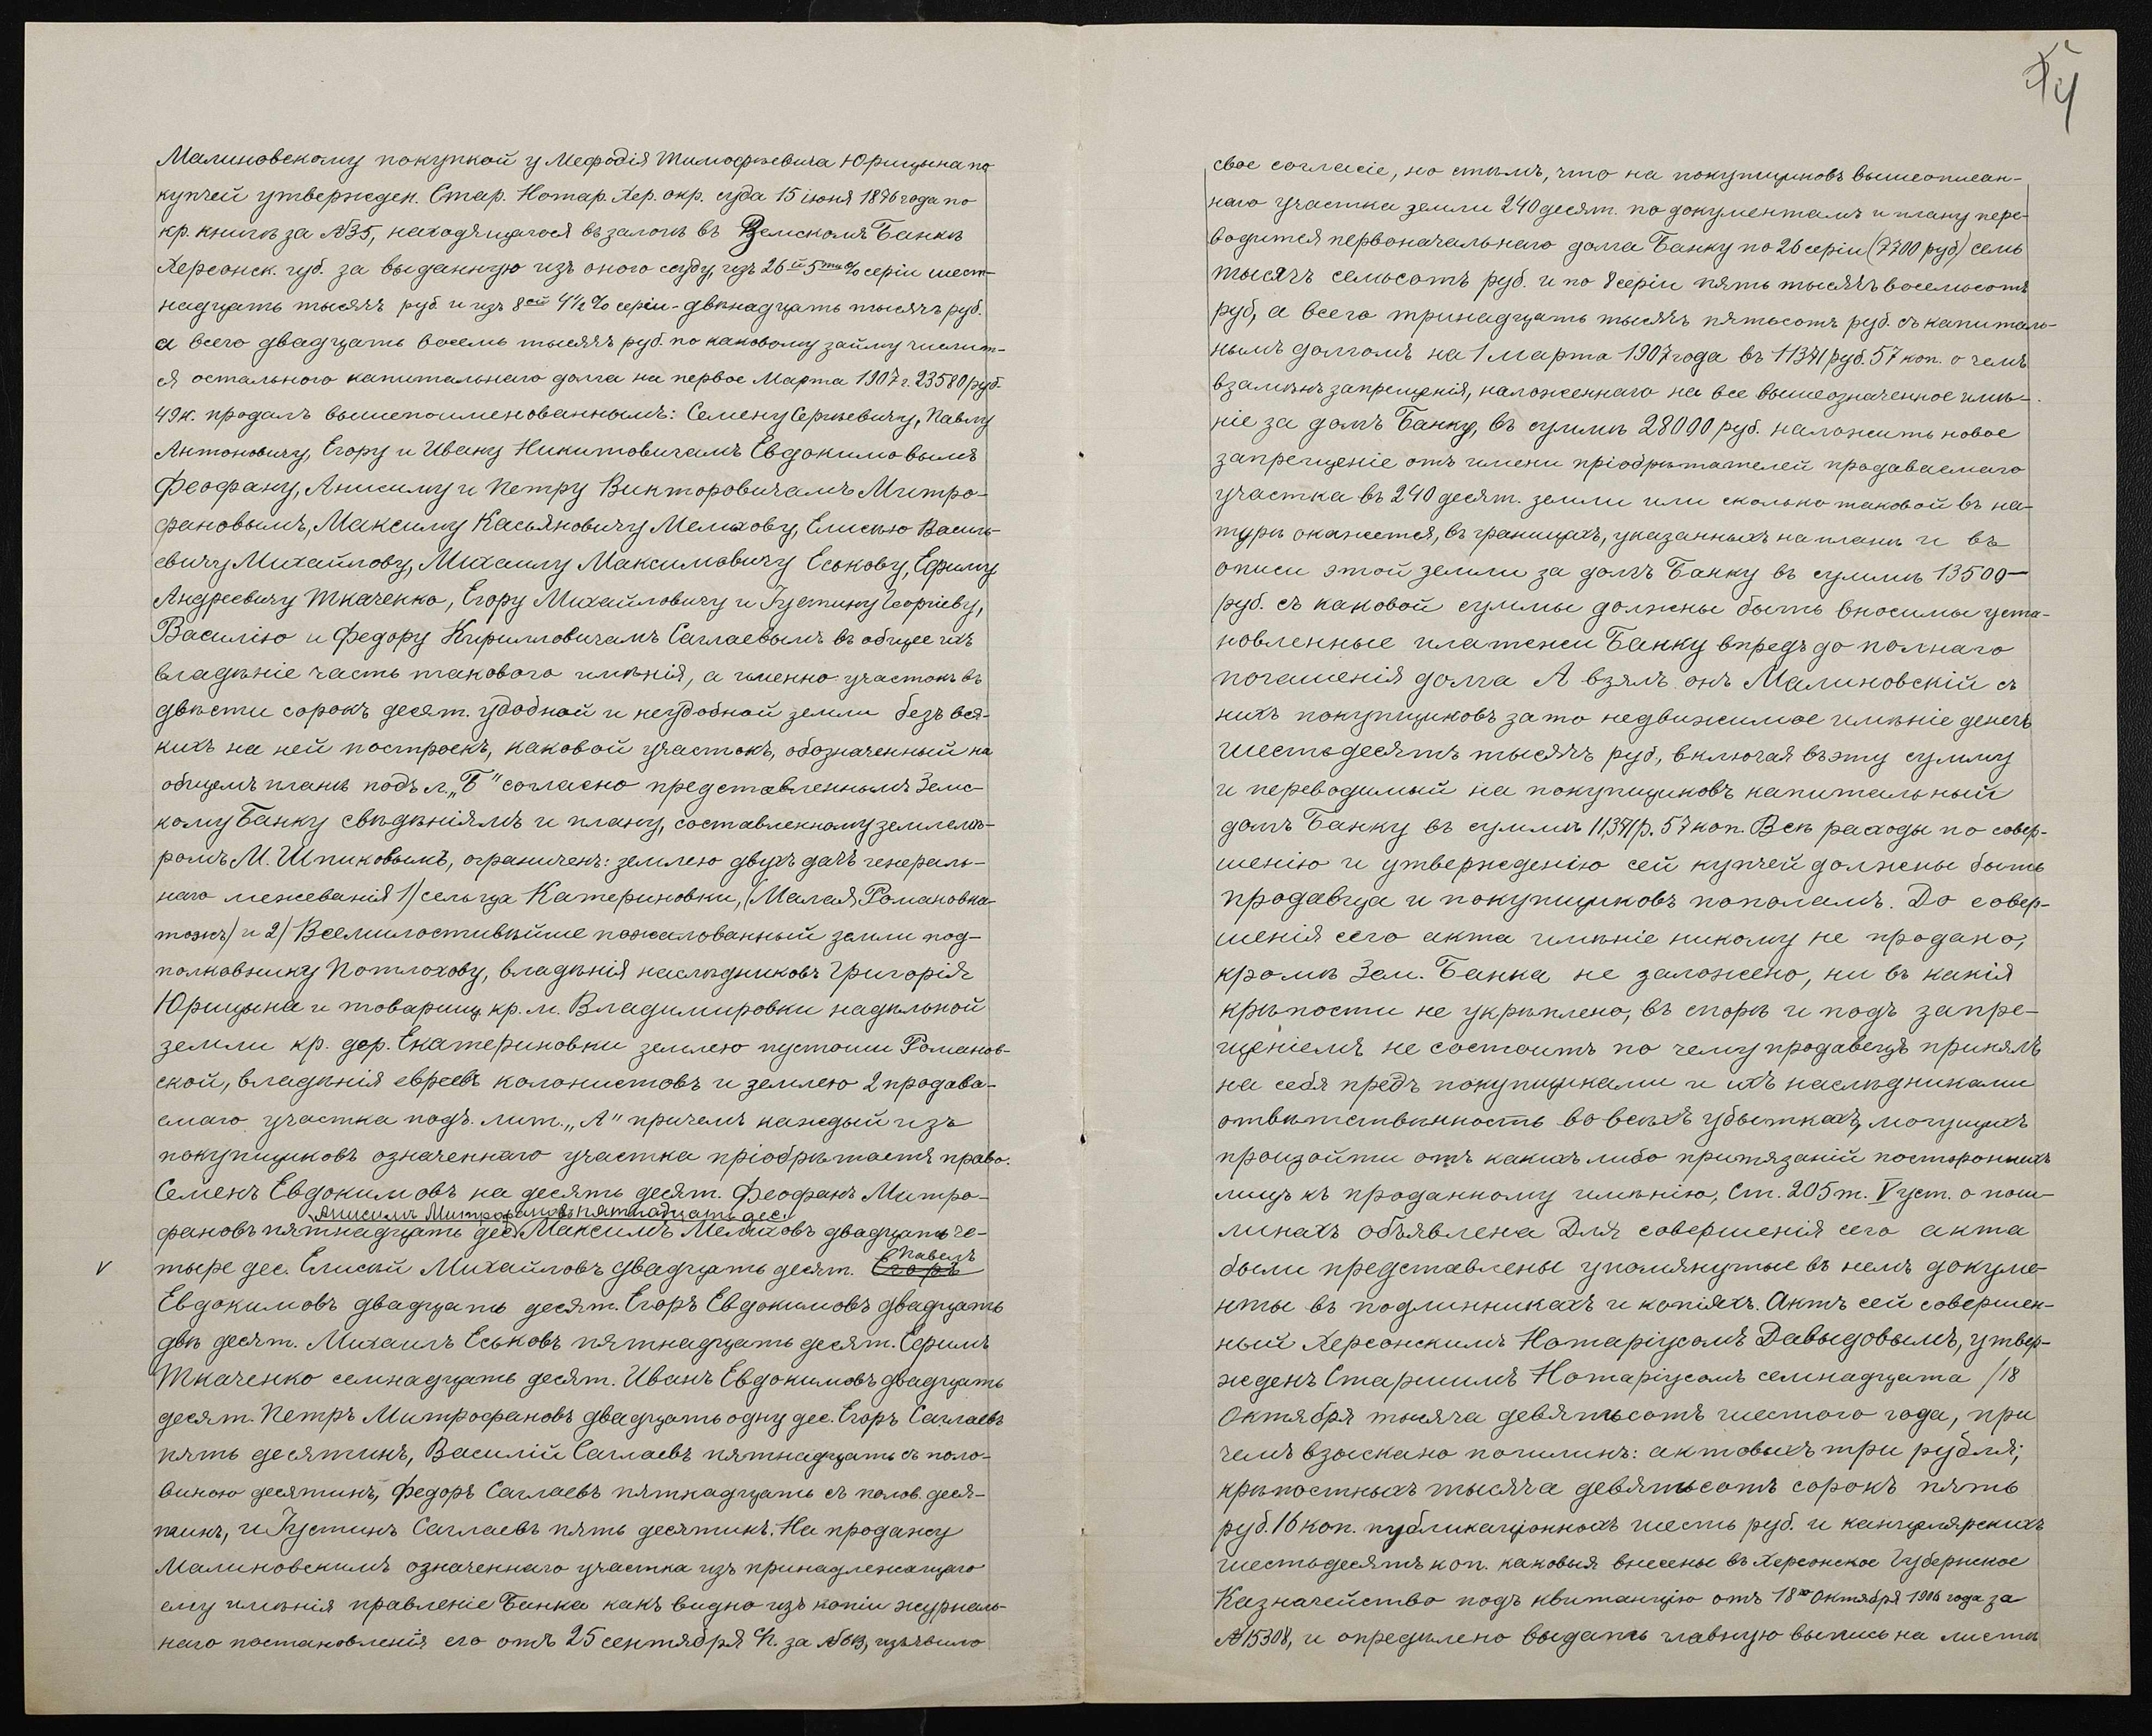 Малиновскому покупкой у Мефодія Тимофѣевича Юрицына по
купчей утвержден. Стар. Нотар. Хер. окр. суда 15 іюня 1876 года по
кр. книгѣ за №35, находящагося въ залогѣ въ Земскомъ Банкѣ
Херсонск. губ. за выданную изъ оного ссуду, изъ 26й 5ти % серіи шест-
надцать тысячъ руб. и изъ 8ой 4½ % серіи - двѣнадцать тысячъ руб.
а всего двадцать восемь тысячъ руб. по каковому займу числит-
ся остального капитальнаго долга на первое Марта 1907 г. 23580 руб.
49 к. продалъ вышепоименованнымъ: Семену Сергѣевичу, Павлу
Антоновичу, Егору и Ивану Никитовичамъ Евдокимовымъ
Феофану, Анисиму и Петру Викторовичамъ Митро-
фановымъ, Максиму Касьяновичу Мелихову, Елисѣю Василь-
евичу Михайлову, Михаилу Максимовичу Еськову, Ефиму
Андреевичу Ткаченко, Егору Михайловичу и Іустину Георгіеву,
Василію и Федору Кирилловичамъ Саглаевымъ въ общее ихъ
владѣніе часть такового имѣнія, а именно участокъ въ
двѣсти сорокъ десят. удобной и неудобной земли безъ вся-
кихъ на ней построекъ, каковой участокъ, обозначенный на
общемъ планѣ подъ л. „Б" согласно представленнымъ Земс-
кому Банку свѣдѣніямъ и плану, составленному землемѣ-
ромъ М. Шпиковымъ, ограниченъ: землею двухъ дачъ генераль-
наго межеванія 1) сельца Катериновки, (Малая Романовка-
тожъ) и 2) Всемилостивѣйше пожалованный земли под-
полковнику Потлохову, владѣнія наслѣдниковъ Григорія
Юрицына и товарищ. кр. м. Владимировки надѣльной
земли кр. дер. Екатериновки землею пустоши Романов-
ской, владѣнія евреевъ колонистовъ и землею 2 продава-
емаго участка подъ лит. „А" причемъ каждый изъ
покупщиковъ означеннаго участка пріобрѣтаетъ право.
Семенъ Евдокимовъ на десять десят. Феофанъ Митро-
Анисимъ Митрофановъ пятнадцать дес.
фановъ пятнадцать дес. Максимъ Мелиховъ двадцать че-
Павелъ
v тыре дес. Елисѣй Михайловъ двадцать десят. Егоръ
Евдокимовъ двадцать десят. Егоръ Евдокимовъ двадцать
двѣ десят. Михаилъ Еськовъ пятнадцать десят. Ефимъ
Ткаченко семнадцать десят. Иванъ Евдокимовъ двадцать
десят. Петръ Митрофановъ двадцать одну дес. Егоръ Саглаевъ
пять десятинъ, Василій Саглаевъ пятнадцать съ поло-
виною десятинъ, Федоръ Саглаевъ пятнадцать съ полов. деся-
тинъ, и Іустинъ Саглаевъ пять десятинъ. На продажу
Малиновскимъ означеннаго участка изъ принадлежащаго
ему имѣнія правленіе Банка какъ видно изъ копіи журналь-
наго постановленія его отъ 25 сентября с/г. за изъявило

4
свое согласіе, но стѣмъ, что на покупщиковъ вышеописан-
наго участка земли 240 десят. по документамъ и плану пере-
водится первоначальнаго долга Банку по 26 серіи (7700 руб) семь
тысячъ семьсотъ руб. и по 8 серіи пять тысячъ восемьсотъ
руб, а всего тринадцать тысячъ пятьсотъ руб. съ капиталь-
нымъ долгомъ на 1 Марта 1907 года въ 11371 руб. 57 коп. о чемъ
взамѣнъ запрещенія, наложеннаго на все вышеозначенное имѣ-
ніе за долгъ Банку, въ суммѣ 28000 руб. наложить новое
запрещеніе отъ имени пріобрѣтателей продаваемаго
участка въ 240 десят. земли или сколько таковой въ на-
турѣ окажется, въ границахъ, указанныхъ на планѣ и въ
описи этой земли за долгъ Банку въ суммѣ 13500-
руб. съ каковой суммы должны быть вносимы уста-
новленные платежи Банку впредь до полнаго
погашенія долга А взялъ онъ Малиновскій съ
нихъ покупщиковъ за то недвижимое имѣніе денегъ
шестьдесятъ тысячъ руб., включая въ эту сумму
и переводимый на покупщиковъ капитальный
долгъ Банку въ суммѣ 11371 р. 57 коп. Всѣ расходы по совер-
шенію и утвержденію сей купчей должны быть
продавца и покупщиковъ пополамъ. До совер-
шенія сего акта имѣніе никому не продано,
кромѣ Зем. Банка не заложено, ни въ какія
крѣпости не укрѣплено, въ спорѣ и подъ запре-
щеніемъ не состоитъ по чему продавецъ принялъ
на себя предъ покупщиками и ихъ наслѣдниками
отвѣтственность во всѣхъ убыткахъ, могущихъ
произойти отъ какихъ либо притязаній постороннихъ
лицъ къ проданному имѣнію, Ст. 205 т. V уст. о пош-
линахъ объявлена Для совершенія сего акта
были представлены упомянутые въ немъ докуме-
нты въ подлинникахъ и копіяхъ. Актъ сей совершен-
ный Херсонскимъ Нотаріусомъ Давыдовымъ, утвер-
жденъ Старшимъ Нотаріусомъ семнадцата /18
Октября тысяча девятьсотъ шестого года, при
чемъ взыскано пошлинъ: актовыхъ три рубля;
крѣпостныхъ тысяча девятьсотъ сорокъ пять
руб. 16 коп. публикаціонныхъ шесть руб. и канцелярскихъ
шестьдесятъ коп. каковыя внесены въ Херсонское Губернское
Казначейство подъ квитанцію отъ 18го Октября 1906 года за
№15308, и опредѣлено выдать главную выпись на листѣ